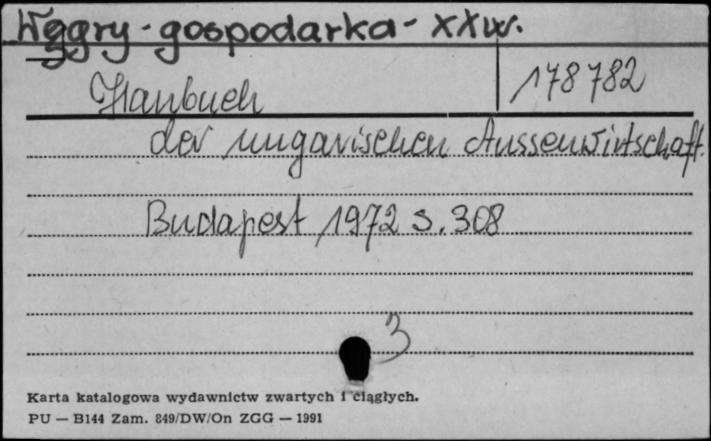 Węgry - gospodarka - XX w.
178782
Hanbuch
der ungarischen Aussenwirtschaft.
Budapest 1972 S. 308
3
Karta katalogowa wydawnictw zwartych i ciągłych.
PU — B144 Zam. 849/DW/On ZGG — 1991